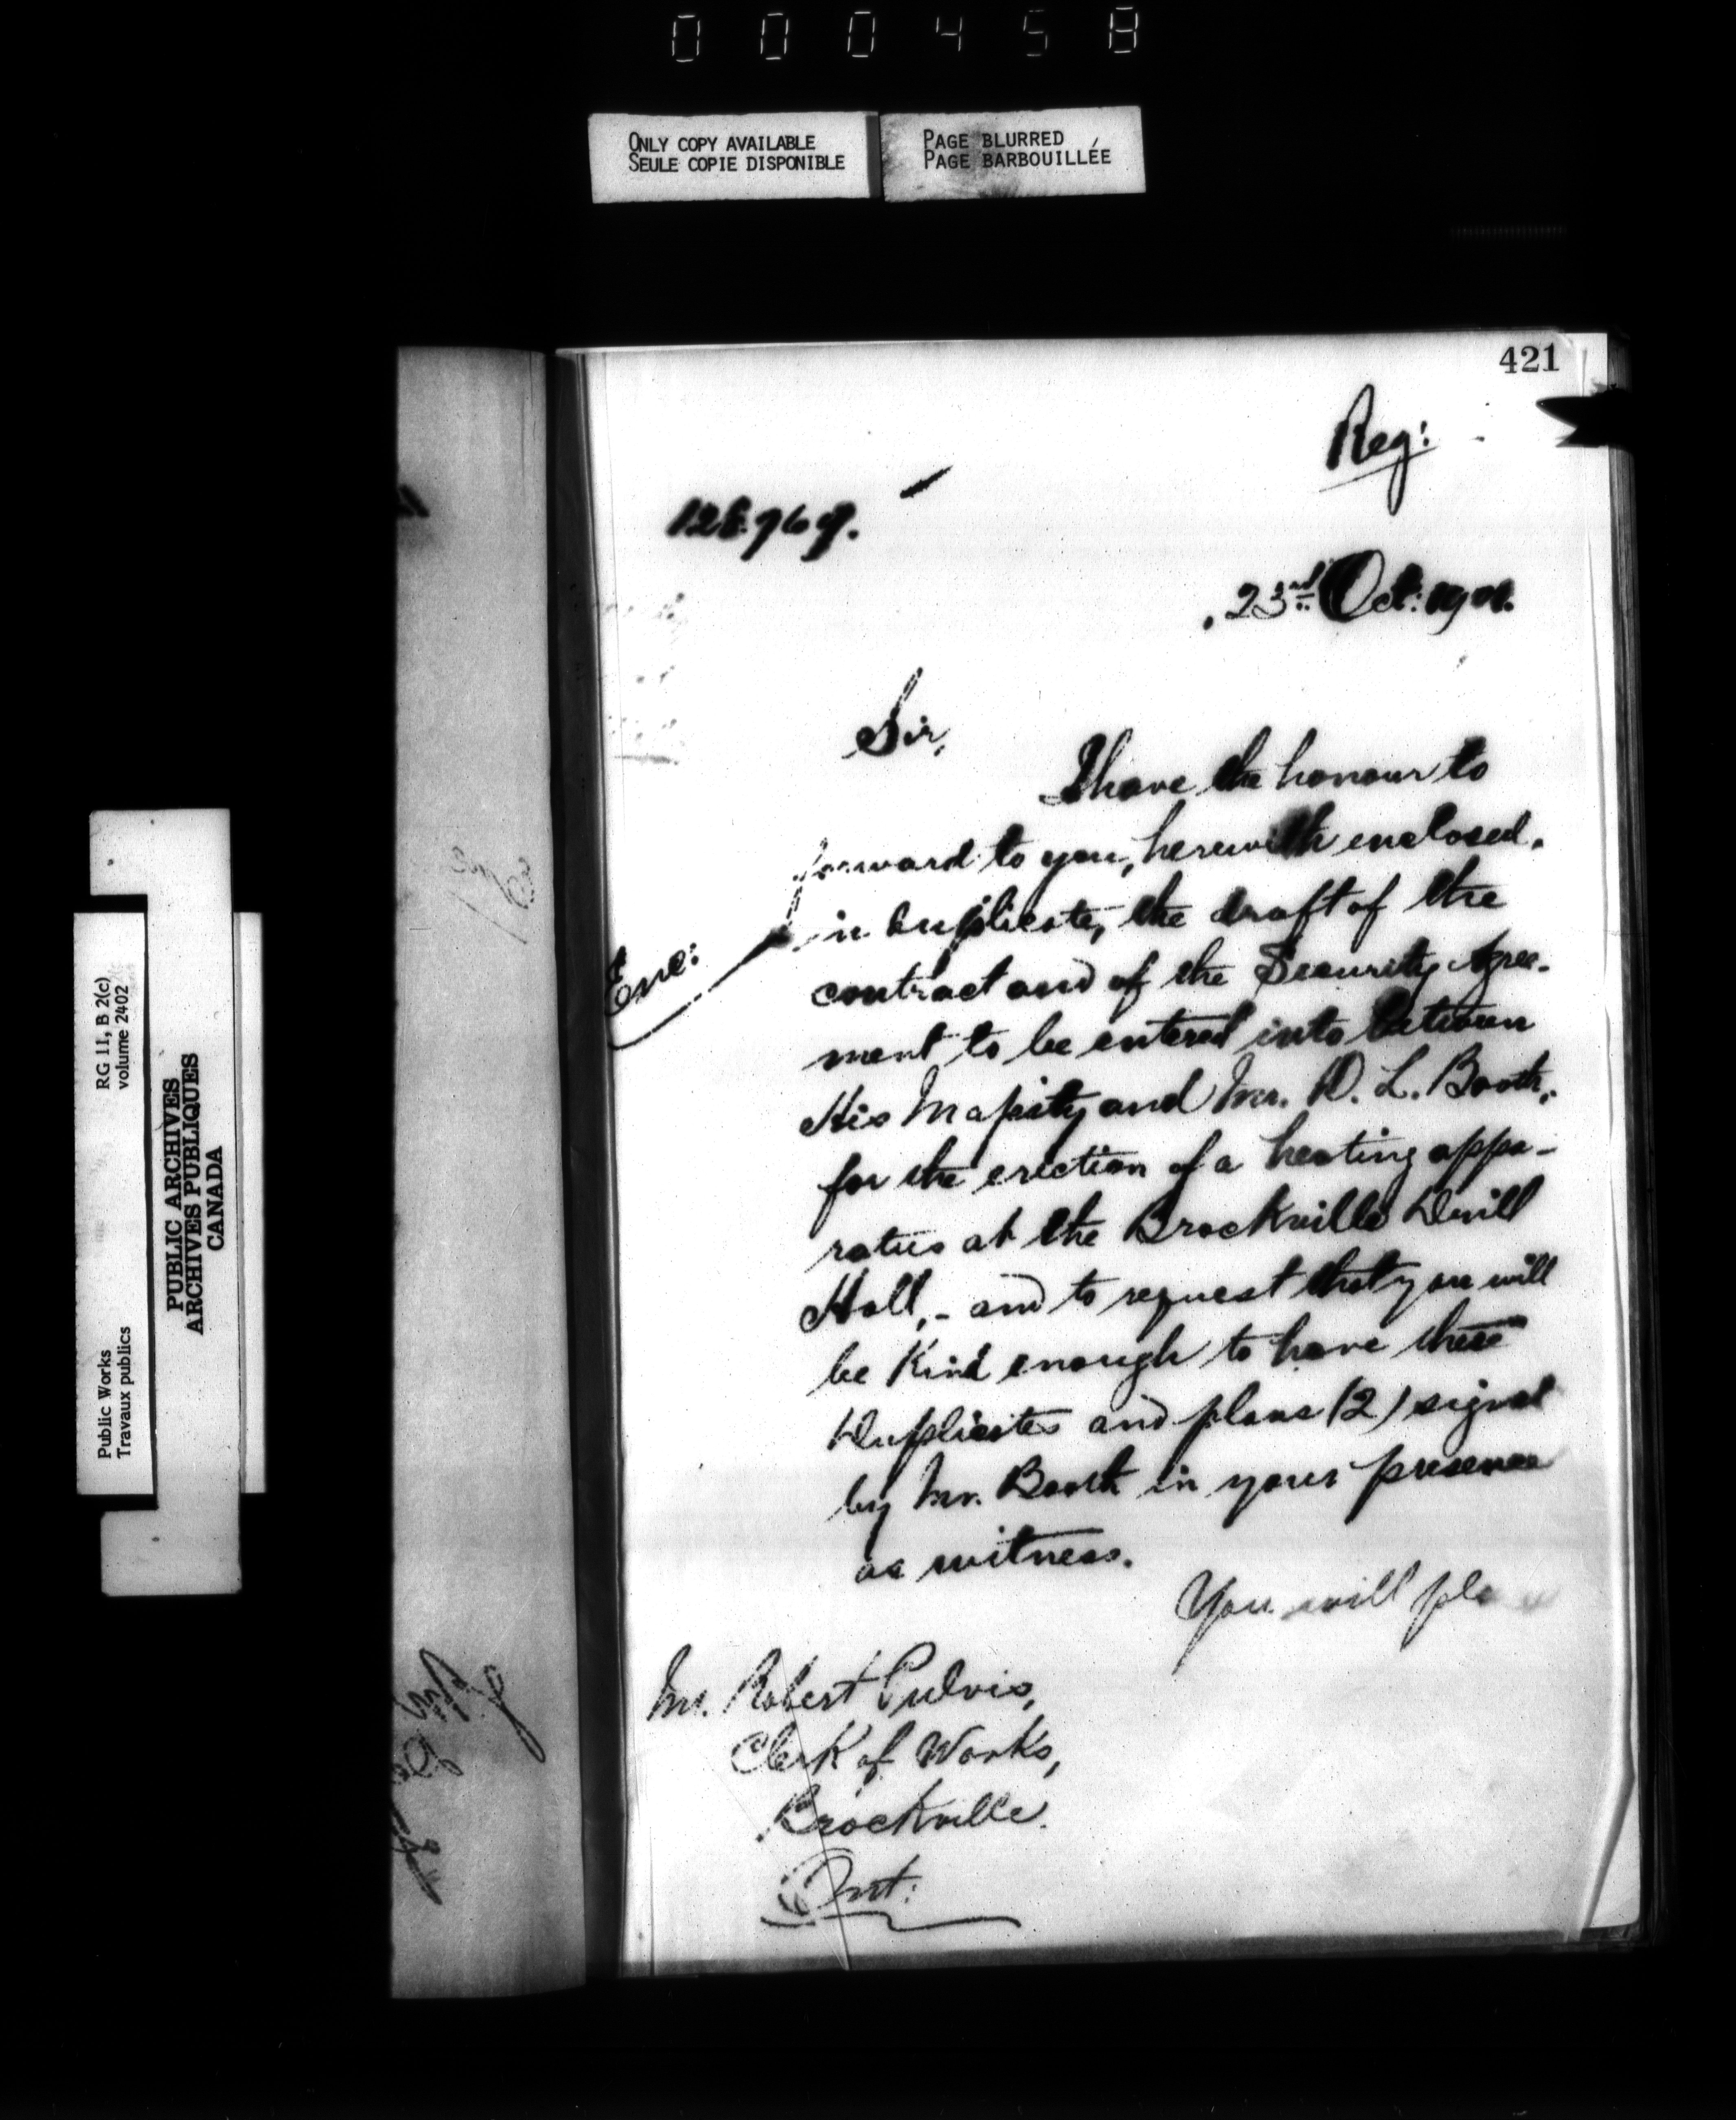 000458
ONLY COPY AVAILABLE
SEULE COPIE DISPONIBLE
PAGE BLURRED
PAGE BARBOUILLÉE
421
Reg:
128.769.
23rd Oct: 1901.
Sir,
I have the honour to
forward to you, herewith enclosed,
in duplicate, the draft of the
Enc:
contract and of the Security Agree-
ment to be entered into between
His Majesty and Mr. D. L. Booth,
for the erection of a heating appa-
ratus at the Brockville Drill
Hall, - and to request that you will
be Kind enough to have these
Duplicates and plans (2) signed
by Mr. Booth in your presence
as witness.
You will
Mr. Robert Pulvis,
Clerk of Works,
Brockville.
Ont:
Public Works
Travaux publics
RG 11, B 2(c)
volume 2402
PUBLIC ARCHIVES
ARCHIVES PUBLIQUES
CANADA